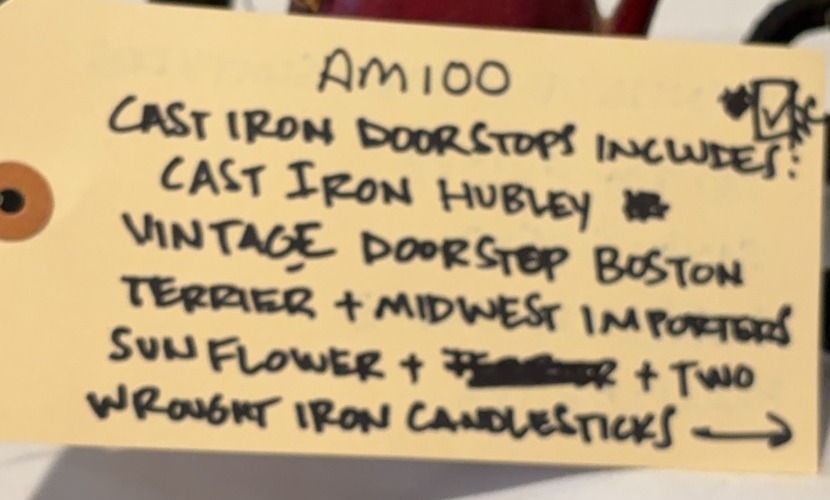 AM100
CAST IRON DOORSTOPS INCLUDES:
CAST IRON HUBLEY
VINTAGE DOORSTOP BOSTON
TERRIER + MIDWEST IMPORTERS
SUNFLOWER + + TWO
WROUGHT IRON CANDLESTICKS →